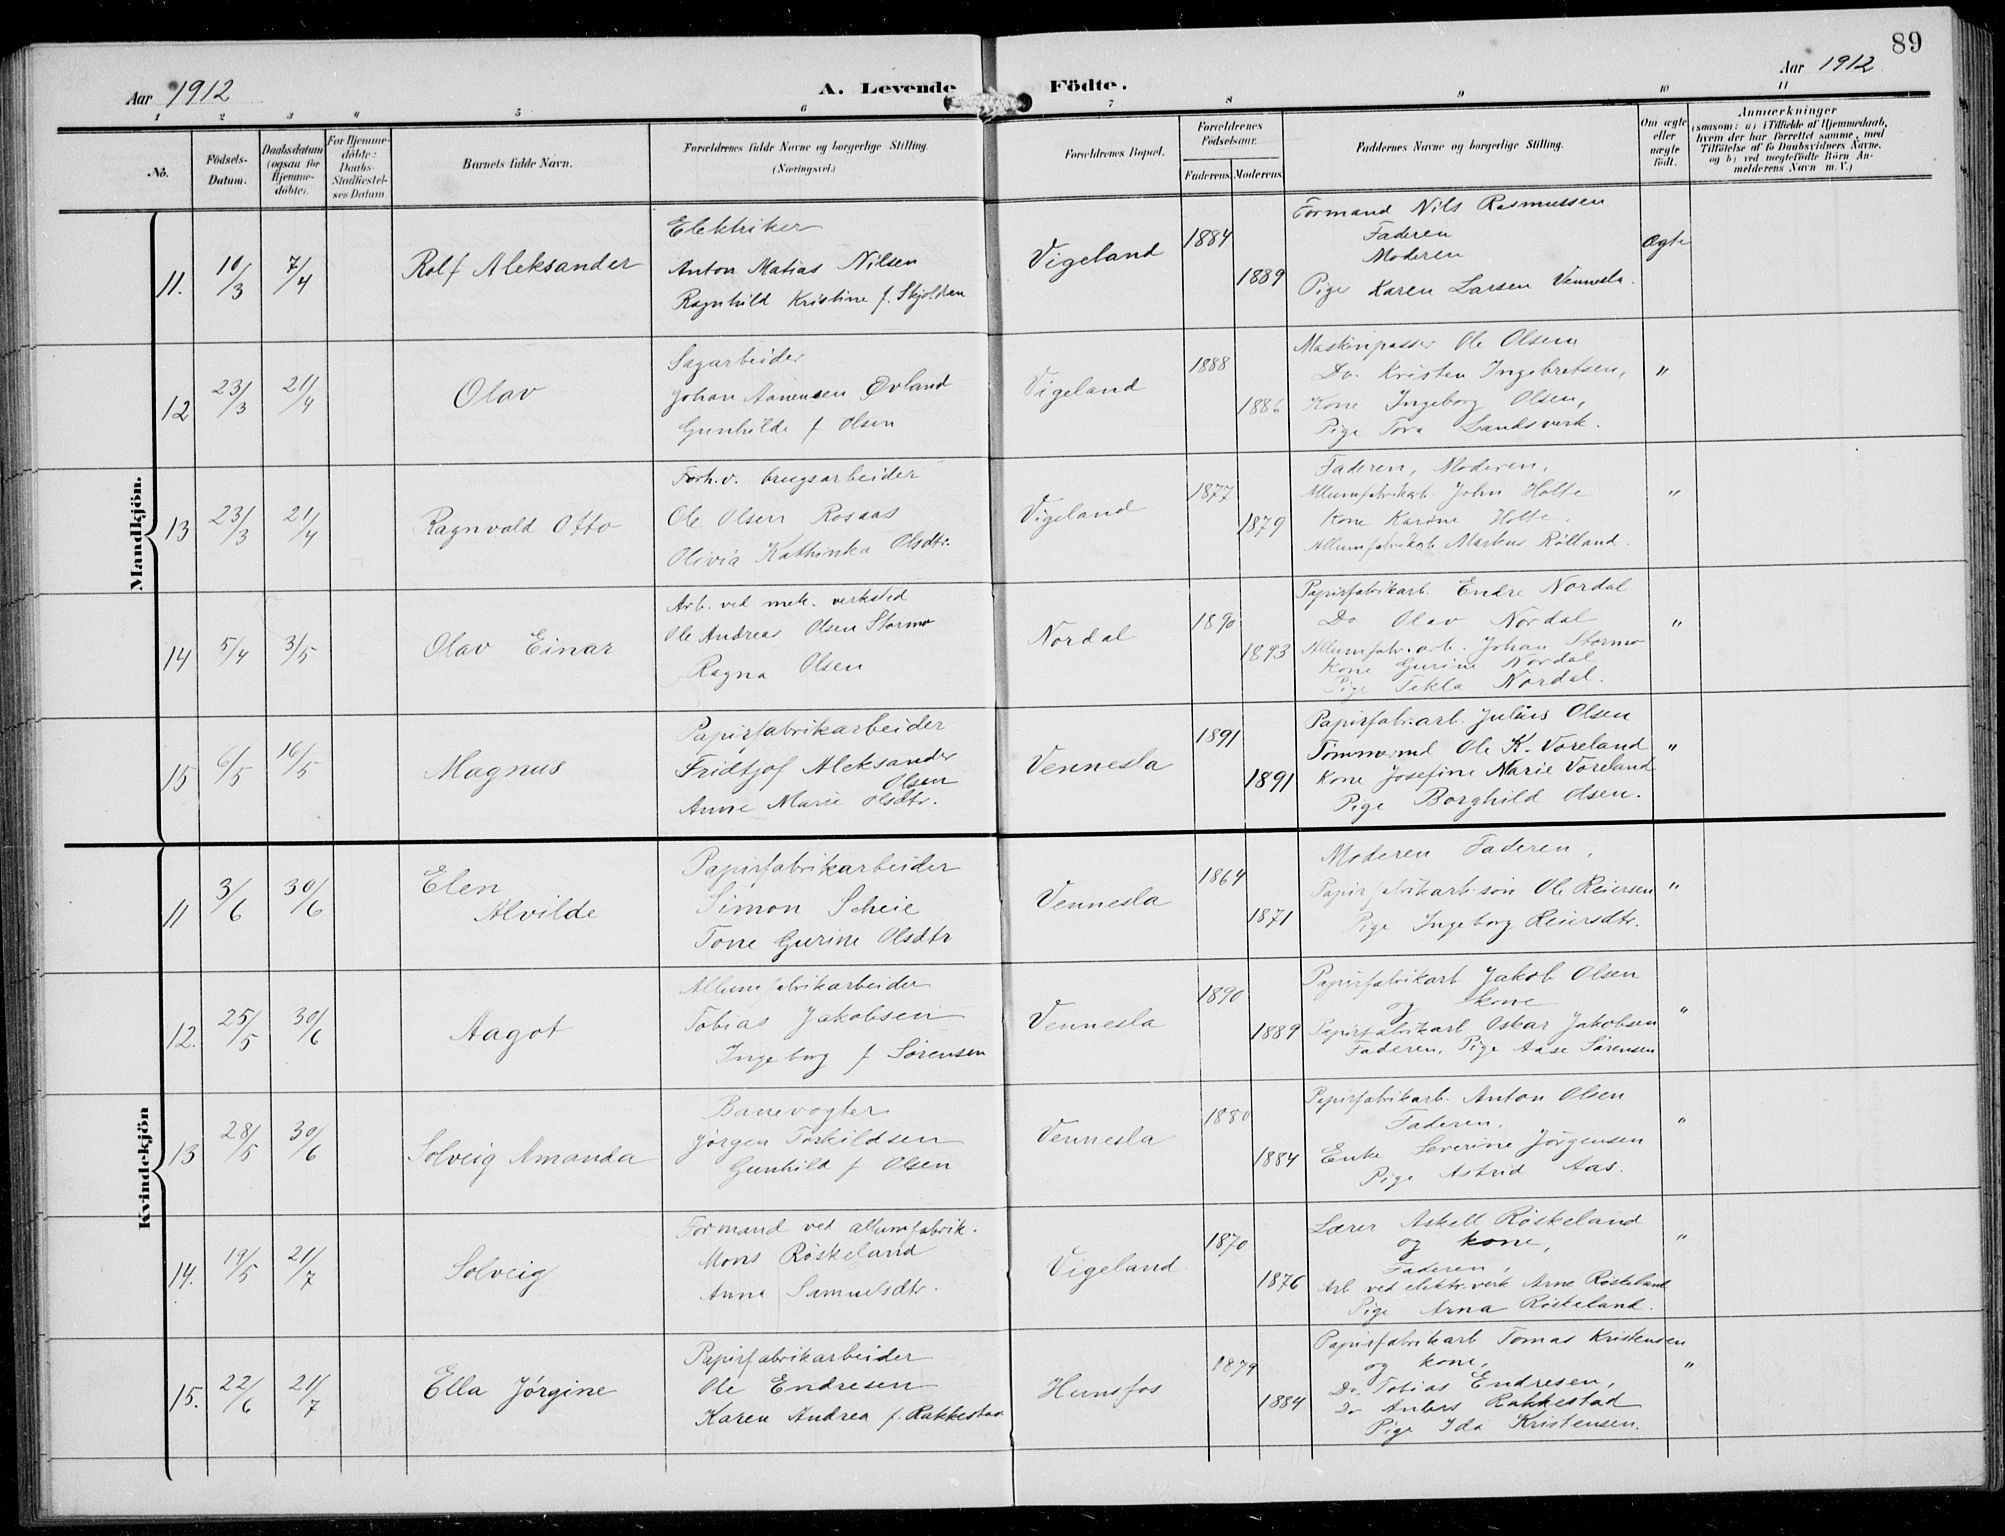 89
Aar 1912
A. Levende Födte.
Aar 1912
1 2 3 4 5 6 7 8 9 10 11
No.
Födsels-Datum.
Daabsdatum (ogsaa for Hjemmedöbte).
For Hjemmedöbte: Daabs-Stadfæstelses Datum
Barnets fulde Navn.
Forældrenes fulde Navne og borgerlige Stilling. (Næringsvei.)
Forældrenes Bopæl.
Forældrenes Födselsaar.
Faderens Moderens
Faddernes Navne og borgerlige Stilling.
Om ægte eller uægte födt.
Anmærkninger
(saasom: a) i Tilfælde af Hjemmedaab, hvem der har forrettet samme, med Tilföielse af to Daabsvidners Navne, og b) ved uægtefödte Börn Anmelderens Navn m. V.)
Mandkjön.
11. 10/3 7/4 Rolf Aleksander
Elektriker
Anton Matias Nilsen
Ragnhild Kristine f. Skjoldren
Vigeland 1884 1889
Formand Nils Rasmussen
Faderen
Moderen
Pige Karen Larsen Vennesla.
Ægte
12 23/3 21/4 Olav
Sagarbeider
Johan Aanensen Øvland
Gunhilde f Olsen
Vigeland 1888 1886
Maskinpasser Ole Olsen
Do. Kristen Ingebretsen,
Kone Ingeborg Olsen,
Pige Tora Landsverk.
"
13 23/3 21/4 Ragnvald Otto
Forh.v. brugsarbeider
Ole Olsen Rosaas
Olivia Kathinka Olsdtr.
Vigeland 1877 1879
Faderen, Moderen,
Allumfabrikarb. John Holte
Kone Karine Holte.
Allumfabrikarb Markus Rølland.
"
14 5/4 3/5 Olav Einar
Arb. ved mek. verksted
Ole Andreas Olsen Stormo
Ragna Olsen
Nordal 1890 1893
Papirfabrikarb. Endre Nordal
Do Olav Nordal
Allumfabr. arb. Johan Stormo
Kone Gurine Nordal
Pige Tekla Nordal.
"
15 6/5 16/5 Magnus
Papirfabrikarbeider
Fridtjof Aleksander
Olsen
Anne Marie Olsdtr.
Vennesla 1891 1891
Papirfabr.arb. Julius Olsen
Tømmermd Ole K. Voreland
Kone Josefine Marie Voreland
Pige Borghild Olsen.
"
Kvindekjön
11 3/6 30/6 Elen
Alvilde
Papirfabrikarbeider
Simon Scheie
Tone Gurine Olsdtr
Vennesla 1864 1871
Moderen Faderen,
Papirfabrikarb.søn Ole Reiersen
Pige Ingeborg Reiersdtr.
"
12. 25/5 30/6 Aagot
Allumfabrikarbeider
Tobias Jakobsen
Ingeborg f Sørensen
Vennesla 1890 1889
Papirfabrikarb Jakob Olsen
og kone
Papirfabrikarb Oskar Jakobsen
Faderen, Pige Aase Sørensen
"
13 28/5 30/6 Solveig Amanda
Banevogter
Jørgen Torkildsen
Gunhild f Olsen
Vennesla 1880 1884
Papirfabrikarb. Anton Olsen
Faderen.
Enke Severine Jørgensen
Pige Astrid Aas.
"
14. 19/5 21/7 Solveig
Formand ved allumfabrik.
Mons Røskeland
Anna Samuelsdtr.
Vigeland 1870 1876
Lærer Askell Røskeland
og kone,
Faderen,
Arb ved elektr.verk Arne Røskeland
Pige Arna Røskeland.
"
15. 22/6 21/7 Ella Jørgine
Papirfabrikarbeider
Ole Endresen
Karen Andrea f. Rakkestad
Hunsfos 1879 1884
Papirfabrikarb Tomas Kristensen
og kone,
Do. Tobias Endresen,
Do Anders Rakkestad
Pige Ida Kristensen.
"